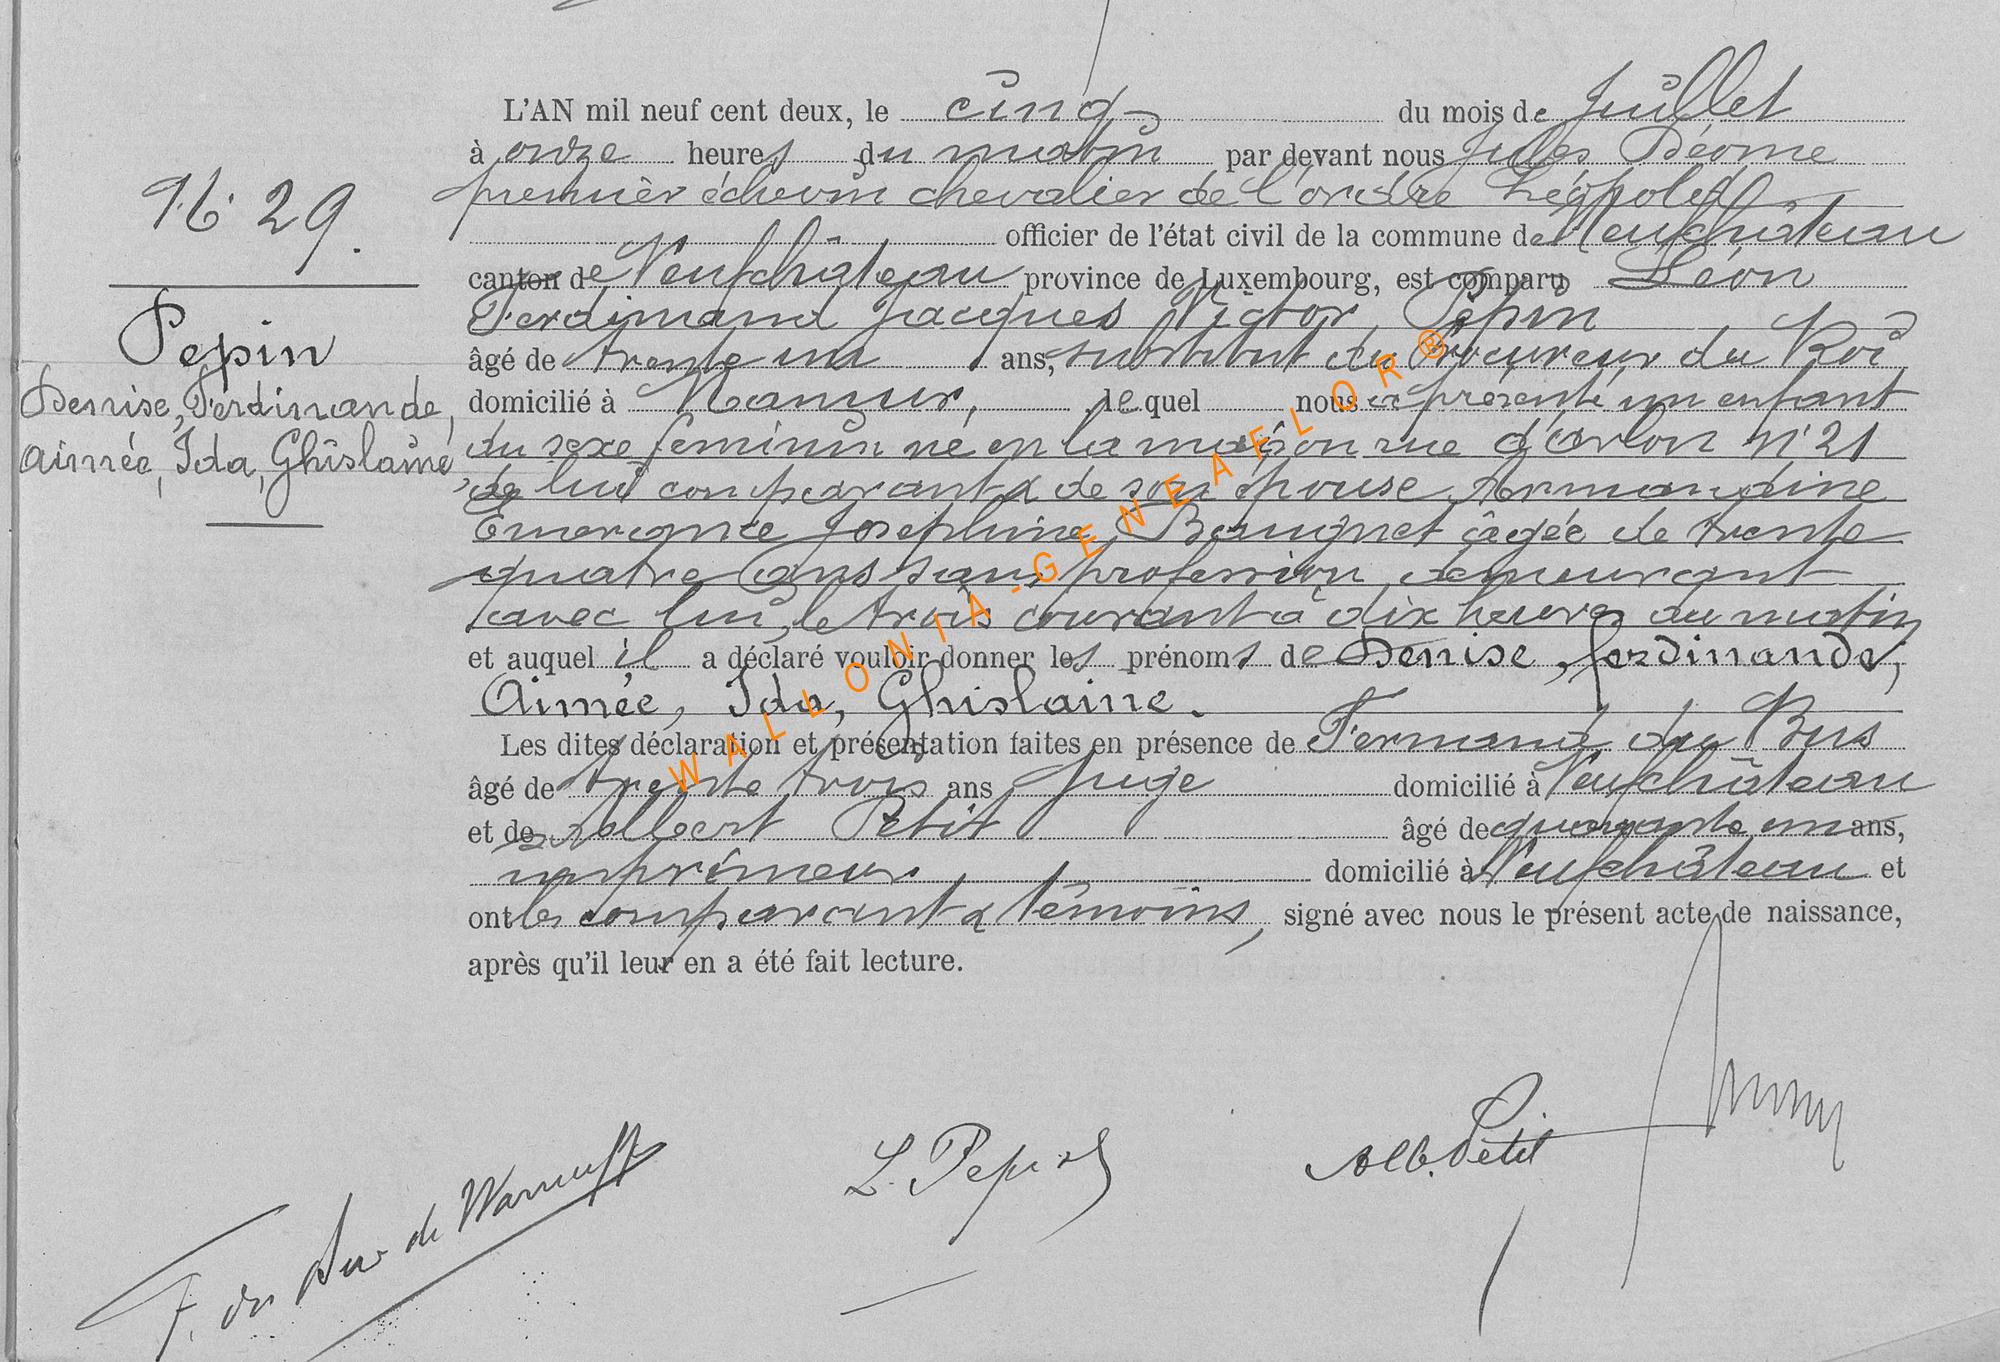 L'AN mil neuf cent deux, le cinq du mois de Juillet
à onze heures du matin par devant nous Jules Déome
premier échevin chevalier de l'ordre Léopold
officier de l'état civil de la commune de Neufchâteau
N° 29.
canton de Neufchâteau province de Luxembourg, est comparu Léon
Ferdinand Jacques Victor Pepin
Pepin
âgé de trente un ans, substitut du Procureur du Roi
Denise, Ferdinande,
domicilié à Namur, lequel nous a présenté un enfant
Aimée, Ida, Ghislaine
du sexe feminin né en la maison rue d'Arlon n° 21
de lui comparant & de son épouse Armandine
Josephine âgée de trente
quatre ans sans profession demeurant
avec lui, le trois courant à dix heures du matin
et auquel il a déclaré vouloir donner les prénoms de Denise, ferdinande,
Aimée, Ida, Ghislaine.
Les dites déclaration et présentation faites en présence de Fernand du Bus
âgé de trente trois ans juge domicilié à Neufchâteau
et de Albert Petit âgé de quarante un ans,
imprimeur domicilié à Neufchâteau et
ont les comparant & témoins, signé avec nous le présent acte de naissance,
après qu'il leur en a été fait lecture.
WALLONIA-GENEAFLOR®
F. du Bus de Warnaffe
L. Pepin
Alb. Petit